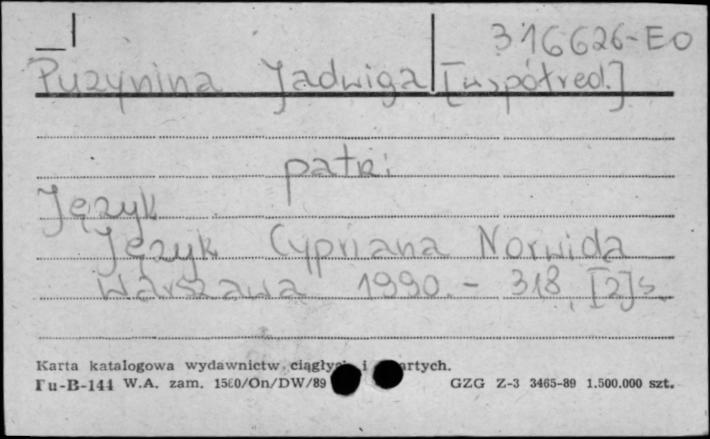 316626-EO
Puzynina Jadwiga [współred.]
patrz:
Język
Język Cypriana Norwida
Warszawa 1990.- 318, [2]s.
Karta katalogowa wydawnictw ciągłych i
Pu-B-144 W.A. zam. 1560/On/DW/89 GZG Z-3 3465-89 1.500.000 szt.